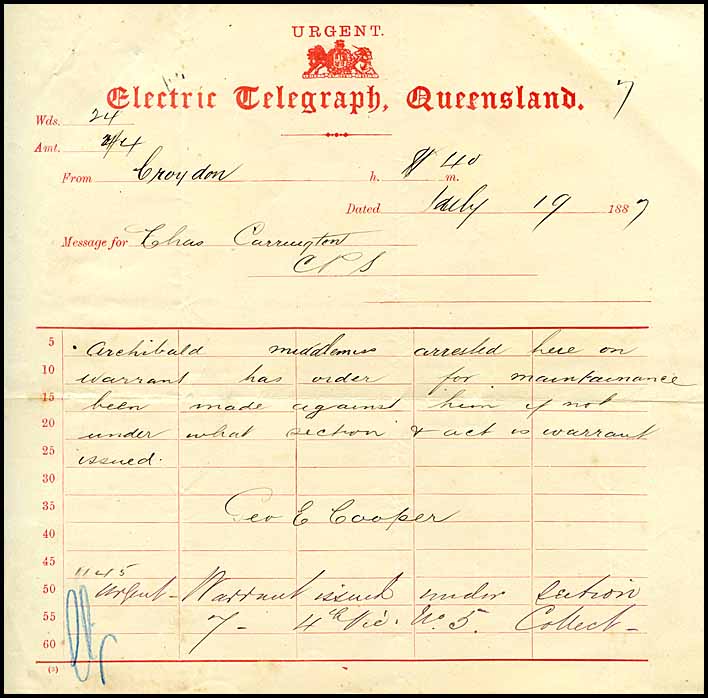 URGENT.
Electric Telegraph, Queensland. 7
Wds. 24
Amt. 2/4
From Croydon h. 40 m.
Dated July 19 1887
Message for Chas Carrington
CPS
5 Archibald Middlemiss arrested here on
10 warrant has order for maintainance
15 been made against him if not
20 under what section & act is warrant
25 issued.
30
35 Geo E Cooper
40
45
1145
50 Urgent - Warrant issued under section
55 7 - 4th Vic. No. 5. Collect -
60